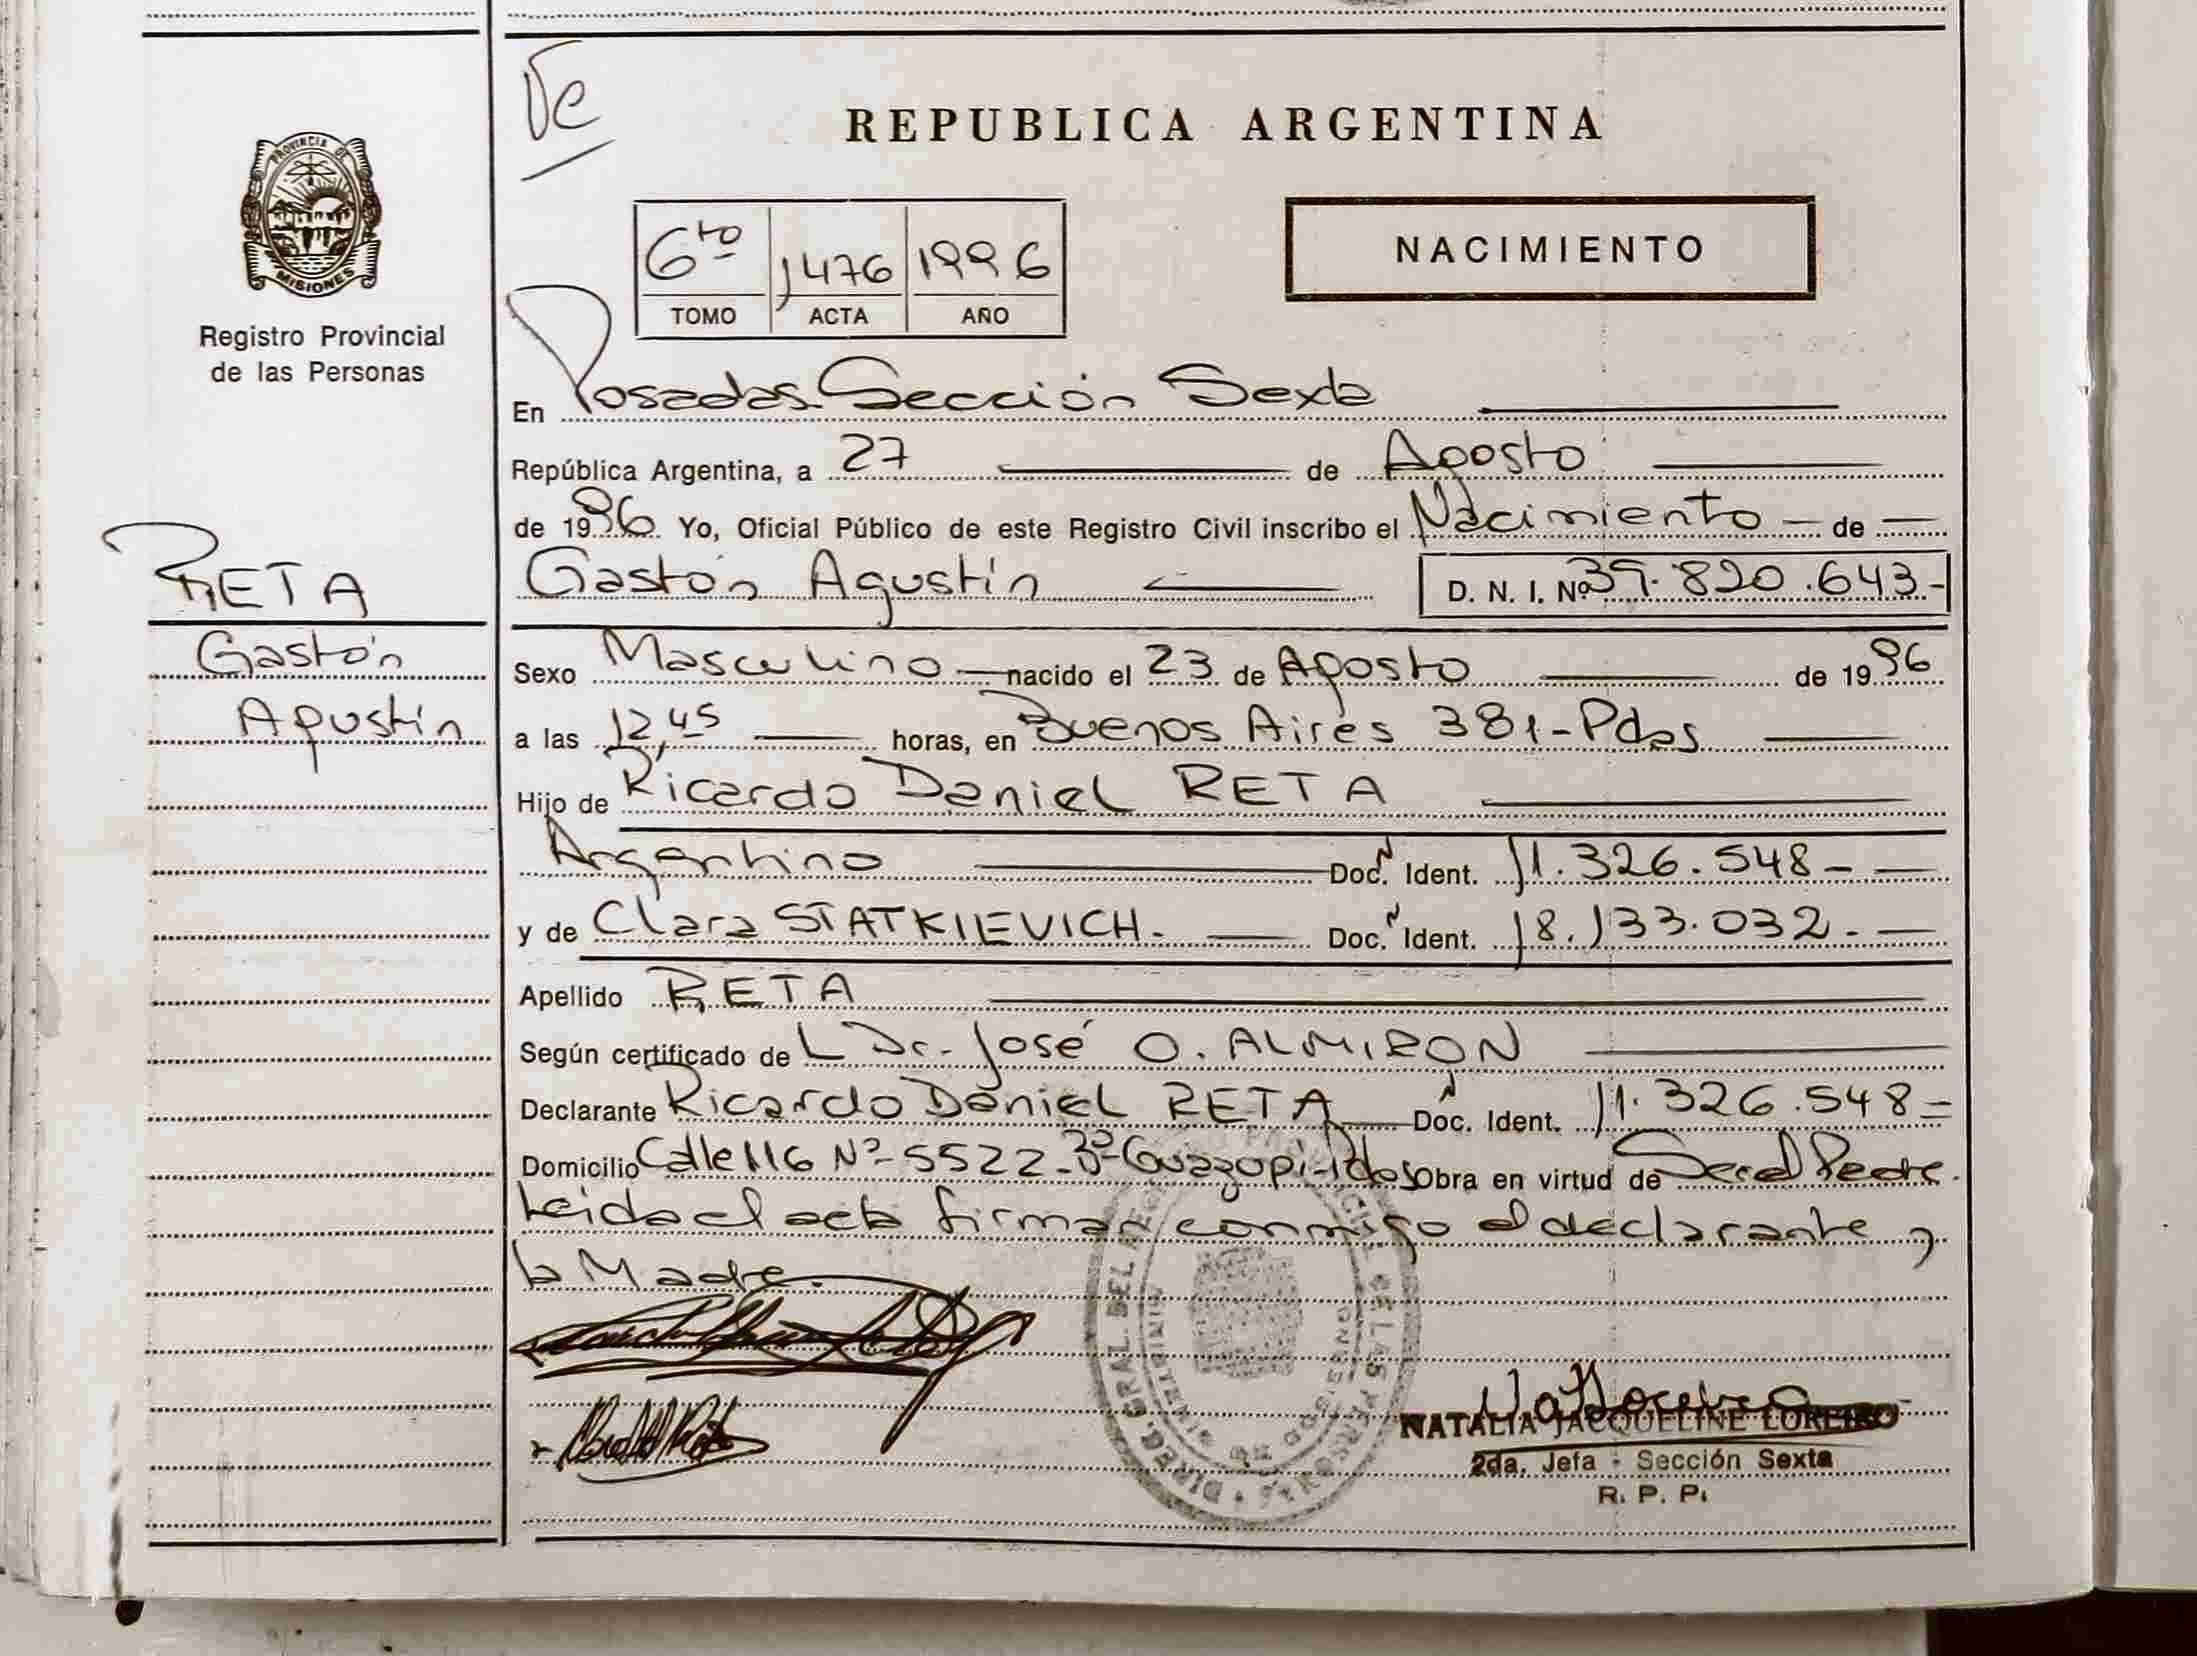 Ve
REPUBLICA ARGENTINA
PROVINCIA DE
MISIONES
Registro Provincial
de las Personas
6to 1476 1996
TOMO ACTA AÑO
NACIMIENTO
En Posadas Sección Sexta
República Argentina, a 27 de Agosto
de 1996 Yo, Oficial Público de este Registro Civil inscribo el Nacimiento — de —
RETA
Gastón Agustín D. N. I. Nº 39.820.643-
Gastón
Agustín
Sexo Masculino — nacido el 23 de Agosto de 1996
a las 12,45 horas, en Buenos Aires 381-Pdas
Hijo de Ricardo Daniel RETA
Argentino Doc. Ident. 11.326.548-
y de Clara STATKIEVICH. Doc. Ident. 18.133.032.
Apellido RETA
Según certificado de L Dr. José O. ALMIRON
Declarante Ricardo Daniel RETA Doc. Ident. 11.326.548-
Domicilio Calle 116 Nº-5522-Bº Guazupi-Pdas Obra en virtud de Ser el Padre.
Leida el acta firman conmigo el declarante y
la Madre.
DIREC. GRAL. DEL REG. PROVINCIAL DE LAS PERSONAS
NATALIA JACQUELINE LOREIRO
2da. Jefa - Sección Sexta
R. P. P.